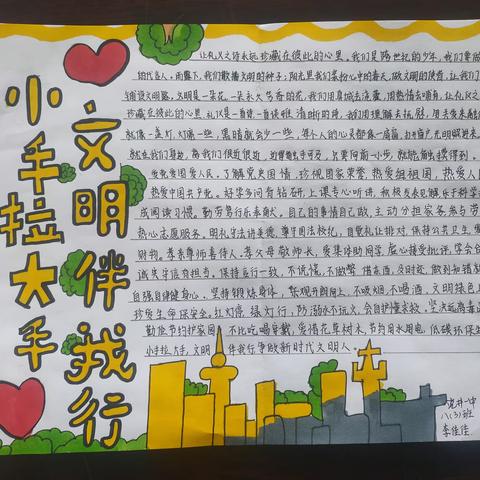 小手拉大手
文明伴我行
让礼义之诗永远珍藏在彼此的心里。我们是跨世纪的少年,我们要做
的代言人。雨露下,我们散播文明的种子;阳光里我们采扮心中的春天,做文明的使者,让我们
铺设文明路。文明是一朵花,一朵永久芳香的花,我们用真诚去浇灌,用热情去哺育,让礼义之
珍藏在彼此的心里。礼仪是一首诗,一首读雅
就像一盏灯,灯亮一些,黑暗就会少一些,每个人的心灵都像一扇窗,打开窗户光明就
就在我们身边,离我们很近很近
只要向前一小步,就能触摸得到。
爱党爱国爱人民。了解党史国情,珍视国家荣誉,热爱祖国,热爱人民
热爱中国共产党。好学多问肯钻研,上课专心听讲,积极发表见解乐于科学
成阅读习惯。勤劳笃行乐奉献。自己的事情自己做,主动分担家务参与劳
热心志愿服务。明礼守法讲美德。遵守国法校纪,自觉礼让排队,保持公共卫生,爱
财物。孝亲尊师善待人。孝父母敬师长,爱集体助同学,虚心接受批评,学会合
诚实守信有担当。保持言行一致,不说谎,不做弊,借东西及时还,做到知错就
自强自律健身心。坚持锻炼身体,乐观开朗向上,不吸烟不喝酒,文明绿色上
珍爱生命保安全。红灯停绿灯行,防溺水不玩火,会自护懂求救,坚决远离毒
勤俭节约护家园。不比吃喝穿戴,爱惜花草树木,节约用水用电,低碳环保
小手拉大手,文明伴我行争做新时代文明人。
一中
八(3)班
李佳佳